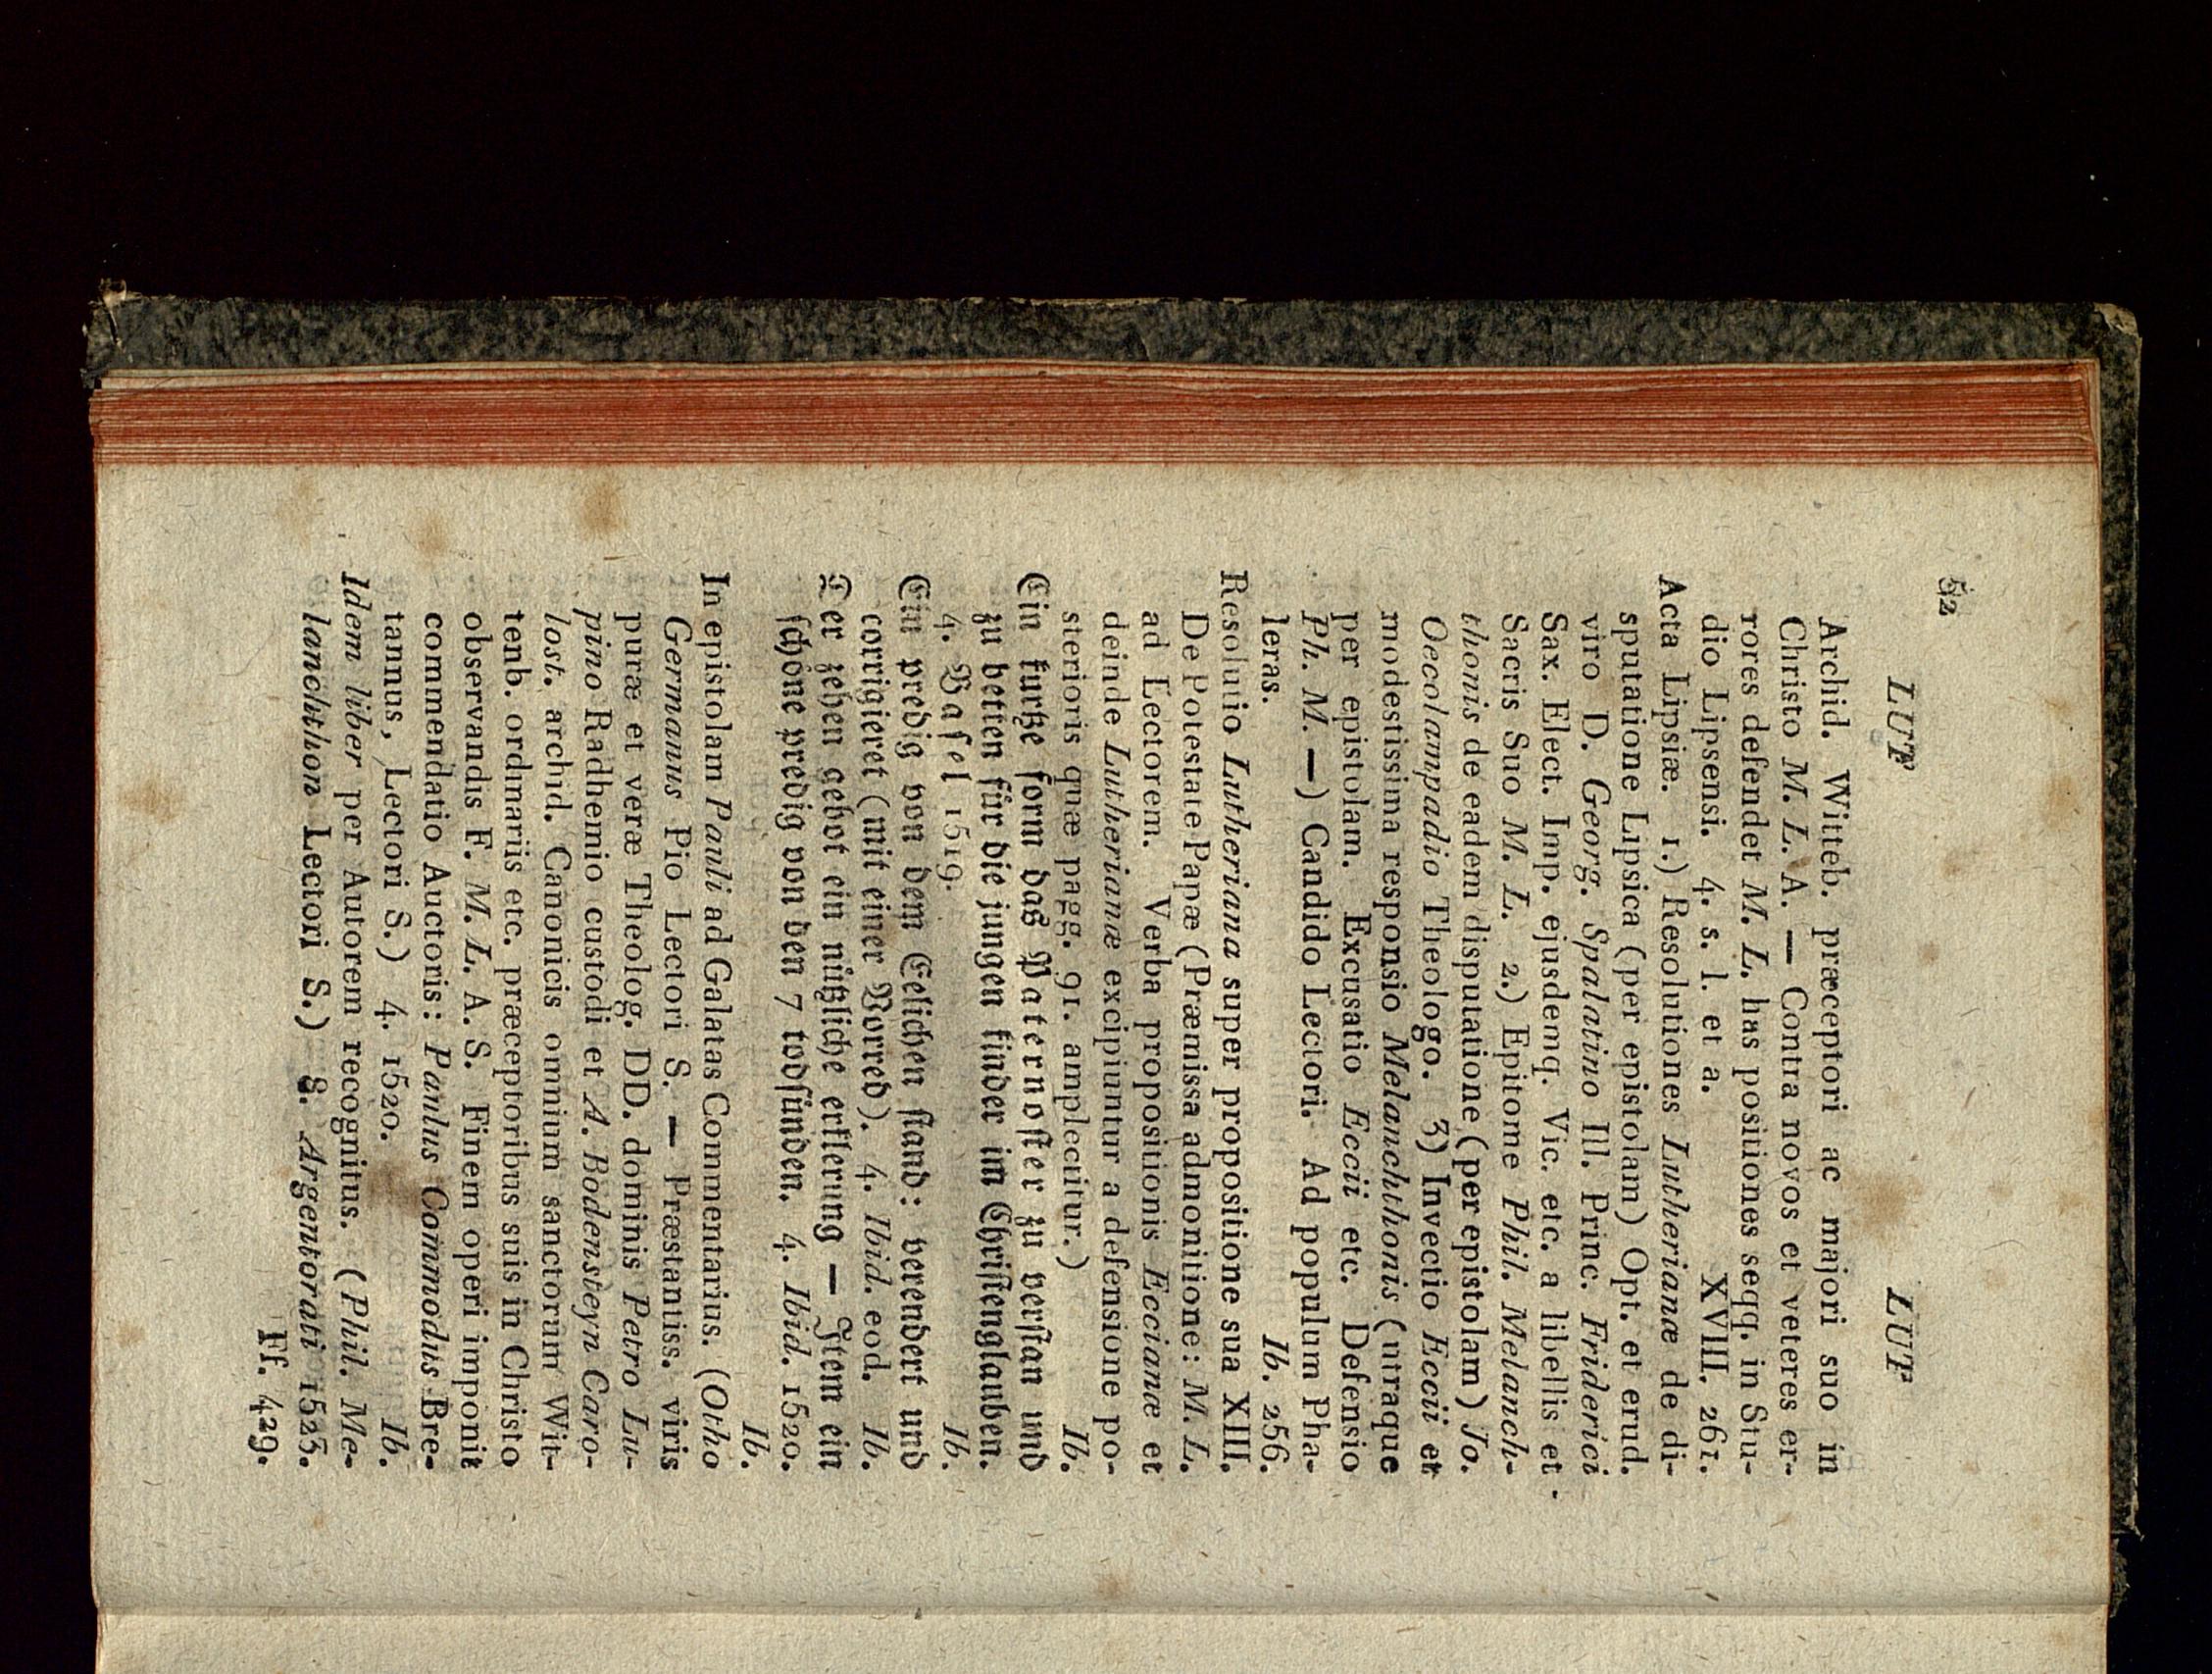 52
LUT LUT
Archid. Witteb. præceptori ac majori suo in
Christo M. L. A. — Contra novos et veteres er-
rores defendet M. L. has positiones seqq. in Stu-
dio Lipsensi. 4. s. l. et a. XVIII. 261.
Acta Lipsiæ. 1.) Resolutiones Lutherianæ de di-
sputatione Lipsica (per epistolam) Opt. et erud.
viro D. Georg. Spalatino Ill. Princ. Friderici
Sax. Elect. Imp. ejusdemq. Vic. etc. a libellis et
Sacris Suo M. L. 2.) Epitome Phil. Melanch-
thonis de eadem disputatione (per epistolam) Jo.
Oecolampadio Theologo. 3) Invectio Eccii et
modestissima responsio Melanchthonis (utraque
per epistolam. Excusatio Eccii etc. Defensio
Ph. M. —) Candido Lectori. Ad populum Pha-
leras. Ib. 256.
Resolutio Lutheriana super propositione sua XIII.
De Potestate Papæ (Præmissa admonitione: M. L.
ad Lectorem. Verba propositionis Eccianæ et
deinde Lutherianæ excipiuntur a defensione po-
sterioris quæ pagg. 91. amplectitur.) Ib.
Ein kurtze form das Paternoster zu verstan und
zu betten für die jungen kinder im Christenglauben.
4. Basel 1519. Ib.
Ein predig von dem Eelichen stand: verendert und
corrigieret (mit einer Vorred). 4. Ibid. eod. Ib.
Der zehen gebot ein nützliche erklerung — Item ein
schöne predig von den 7 todsünden. 4. Ibid. 1520.
Ib.
In epistolam Pauli ad Galatas Commentarius. (Otho
Germanus Pio Lectori S. — Præstantiss. viris
puræ et veræ Theolog. DD. dominis Petro Lu-
pino Radhemio custodi et A. Bodensteyn Caro-
lost. archid. Canonicis omnium sanctorum Wit-
tenb. ordinariis etc. præceptoribus suis in Christo
observandis F. M. L. A. S. Finem operi imponit
commendatio Auctoris: Paulus Commodus Bre-
tannus, Lectori S.) 4. 1520. Ib.
Idem liber per Autorem recognitus. (Phil. Me-
lanchthon Lectori S.) 8. Argentorati 1523.
Ff. 429.